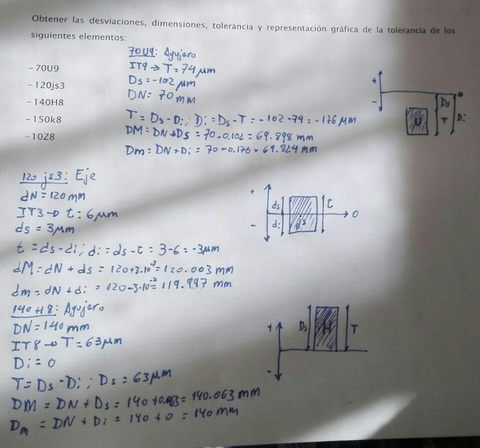 Obtener las desviaciones, dimensiones, tolerancia y representación gráfica de la tolerancia de los
siguientes elementos:
-70U9
-120js3
-140H8
-150k8
-10Z8
70U9: Agujero
IT9 → T = 74 μm
Ds = -102 μm
DN = 70 mm
T = Ds - Di; Di = Ds - T = -102 - 74 = -176 μm
DM = DN + Ds = 70 - 0,102 = 69.898 mm
Dm = DN + Di = 70 - 0.176 = 69.824 mm
+
-
0
Ds
T
Di
120 js3: Eje
dN = 120 mm
IT3 → t = 6 μm
ds = 3 μm
t = ds - di; di = ds - t = 3 - 6 = -3 μm
dM = dN + ds = 120 + 3·10⁻³ = 120.003 mm
dm = dN + di = 120 - 3·10⁻³ = 119.997 mm
+
-
ds
di
js
t
0
140H8: Agujero
DN = 140 mm
IT8 → T = 63 μm
Di = 0
T = Ds - Di; Ds = 63 μm
DM = DN + Ds = 140 + 0.063 = 140.063 mm
Dm = DN + Di = 140 + 0 = 140 mm
+
-
Ds
H
T